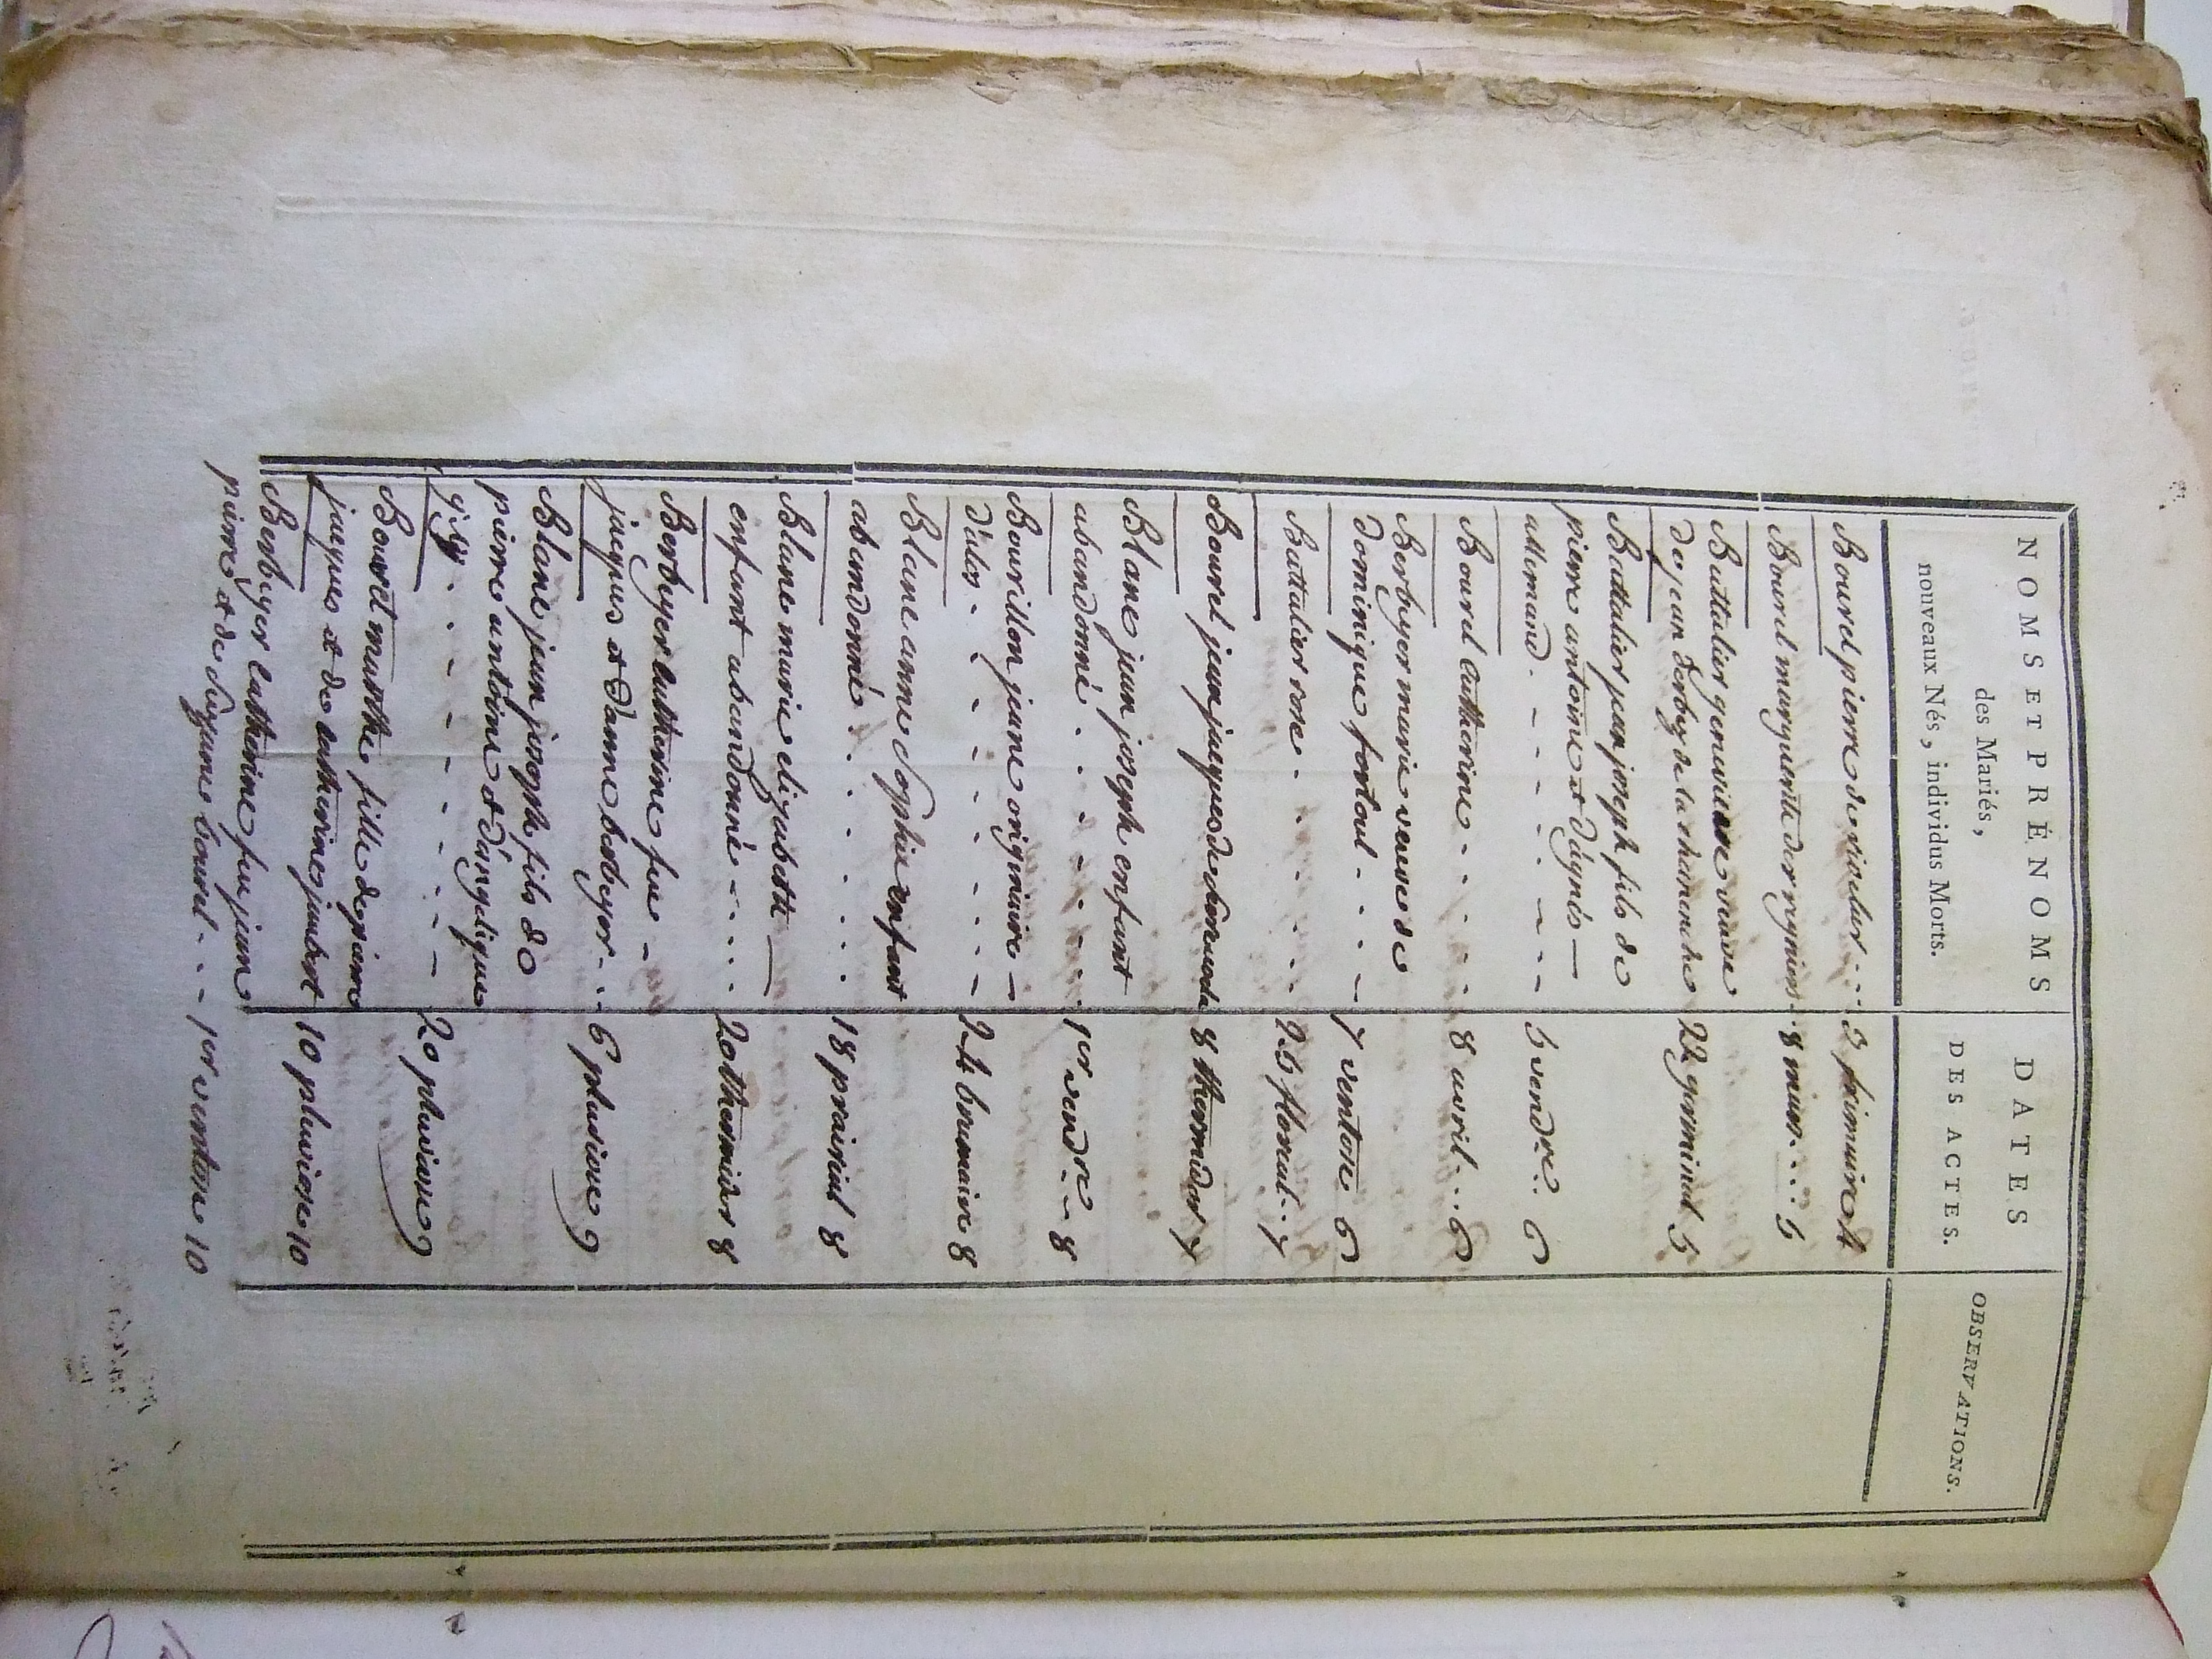 NOMS ET PRÉNOMS
des Mariés,
nouveaux Nés, individus Morts.
DATES
DES ACTES.
OBSERVATIONS.
Bourel pierre de
3 frimaire 4
Bourel marguerite de regnier
8 5
Battalier genevieve veuve
de jean de la
22 germinal 5
Battalier jean joseph fils de
pierre antoine et d'agnès
allemand
5 vendre 6
Bourel catherine
8 avril 6
Berbeyer marie veuve de
dominique fortoul
7 ventose 6
Battalier rose
25 floreal 7
Bourel jean jacques de
8 thermidor 7
Blanc jean joseph enfant
abandonné
1er vendre 8
Bourillon jeanne originaire
d'alos
24 brumaire 8
Blanc anne Sophie enfant
abandonné
18 prairial 8
Blanc marie elizabeth
enfant abandonné
20 thermidor 8
Berbeyer catherine feu
jacques et d'anne berbeyer
6 pluviose 9
Blanc jean joseph fils de
pierre antoine et d'angelique
20 pluviose 9
Bouret marthe fille de pierre
jacques et de catherine jaubert
10 pluviose 10
Berbeyer catherine feu jean
pierre et de Suzanne bourel
1er ventose 10